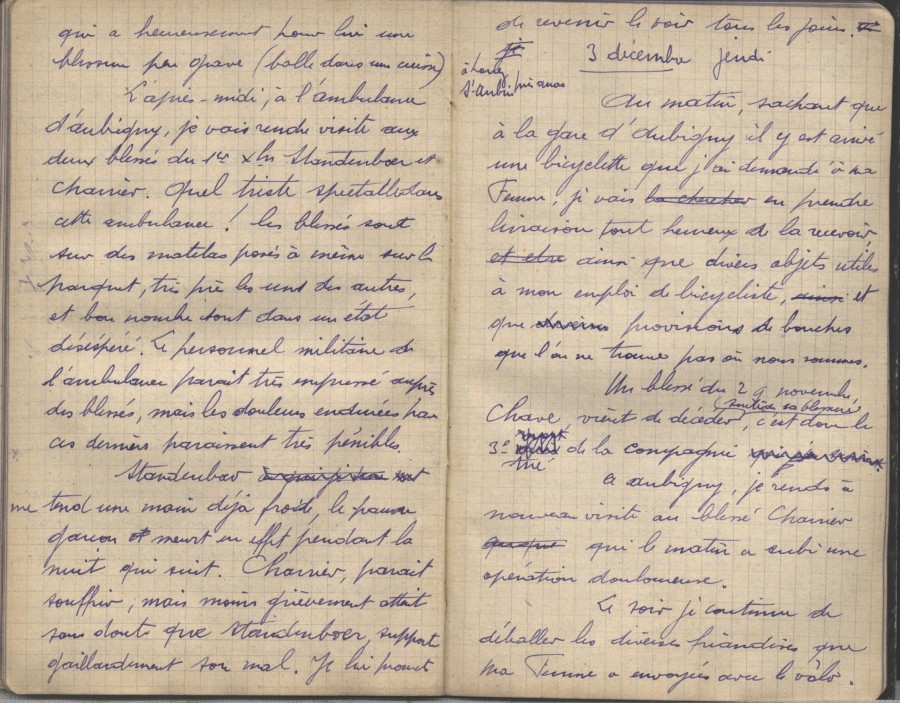 qui a heureusement pour lui une
blessure peu grave (balle dans une cuisse)
L'après-midi, à l'ambulance
d'aubigny, je vais rendre visite aux
deux blessés du 1er Standenboer et
Charrier. Quel triste spectacle dans
cette ambulance ! les blessés sont
sur des matelas posés à même sur le
parquet, très près les uns des autres,
et bon nombre sont dans un état
désespéré. Le personnel militaire de
l'ambulance parait très empressé auprès
des blessés, mais les douleurs endurées par
ces derniers paraissent très pénibles.
Standenboer
me tend une main déjà froide, le pauvre
garçon meurt en effet pendant la
nuit qui suit. Charrier, parait
souffrir, mais moins grièvement atteint
sans doute que Standenboer, supporte
gaillardement son mal. Je lui promet
de revenir le voir tous les jours.
3 décembre jeudi
à
St Aubin près arras
Au matin, sachant que
à la gare d'Aubigny il y est arrivé
une bicyclette que j'ai demandé à ma
Femme, je vais la chercher en prendre
livraison tout heureux de la recevoir,
et etre ainsi que divers objets utiles
à mon emploi de bicycliste, ainsi et
que divers provisions de bouches
que l'on ne trouve pas où nous sommes.
Un blessé du 29 novembre,
(suite de sa blessure)
Chave vient de décéder, c'est donc le
3e de la compagnie
tué
A aubigny, je rends à
nouveau visite au blessé Charrier
qui le matin a subi une
opération douloureuse.
Le soir je continue de
déballer les diverses friandises que
ma Femme a envoyées avec le vélo.